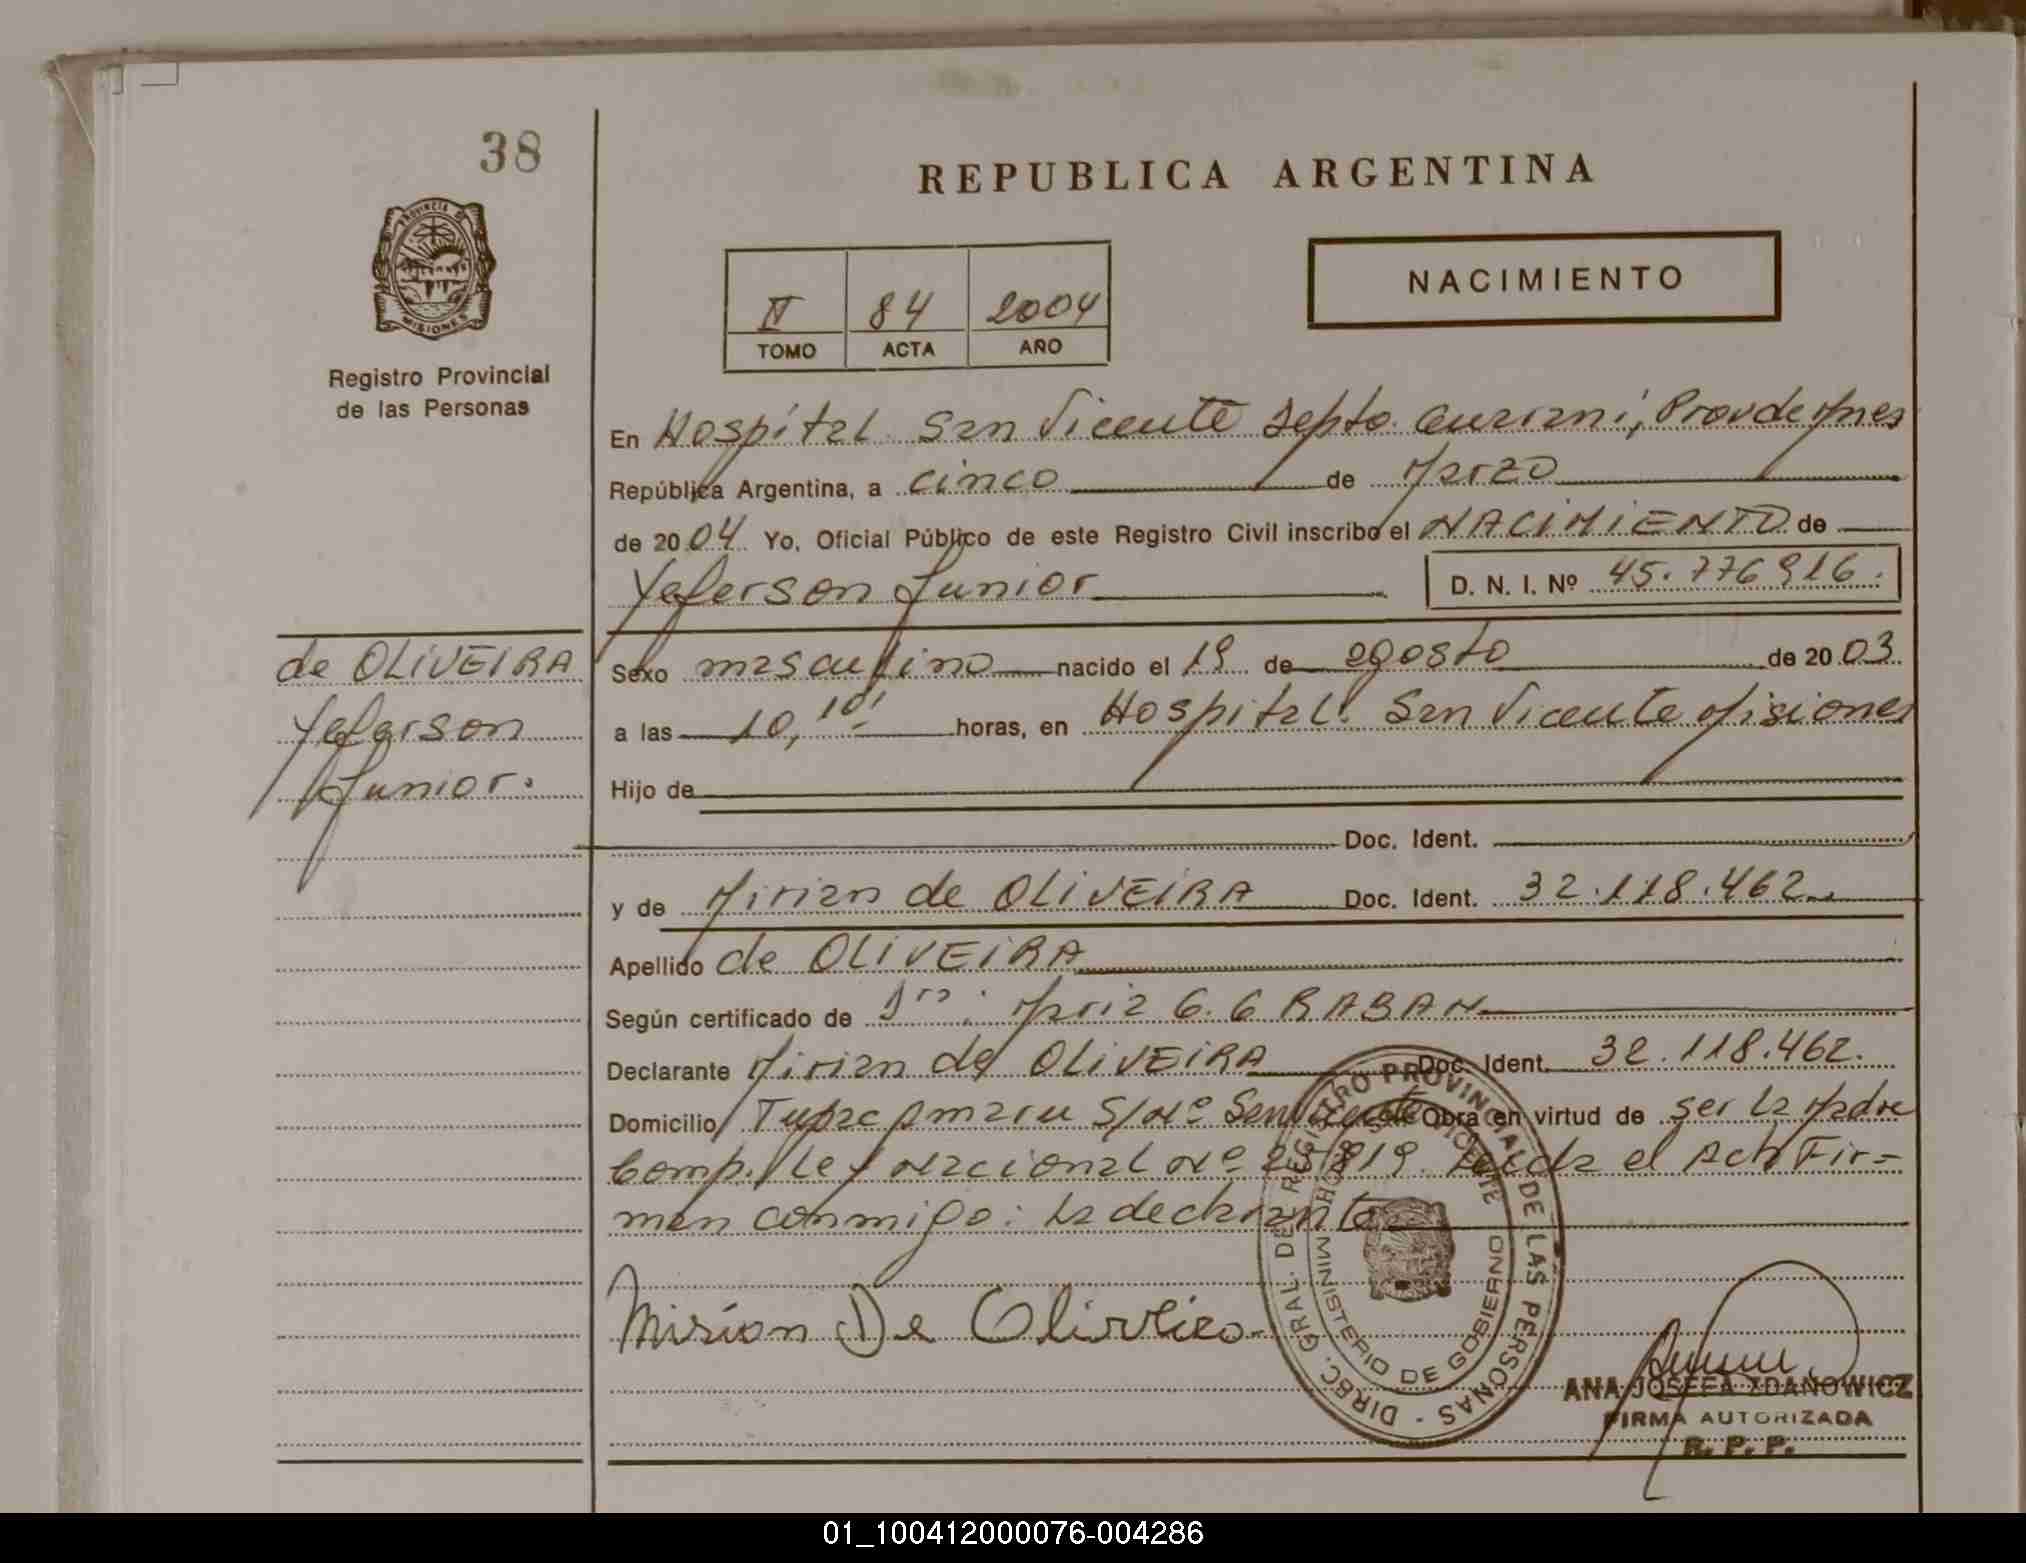 38
REPUBLICA ARGENTINA
PROVINCIA DE
MISIONES
Registro Provincial
de las Personas
NACIMIENTO
II 84 2004
TOMO ACTA AÑO
En Hospital San Vicente Depto. Guarani, Prov de Mnes
República Argentina, a cinco de Marzo
de 2004 Yo, Oficial Público de este Registro Civil inscribo el NACIMIENTO de
Yeferson Junior D. N. I. Nº 45.776916.
de OLIVEIRA
Yeferson
Junior.
Sexo masculino nacido el 19 de agosto de 2003
a las 10,10' horas, en Hospital San Vicente Misiones
Hijo de
Doc. Ident.
y de Mirian de OLIVEIRA Doc. Ident. 32.118.462
Apellido de OLIVEIRA
Según certificado de Dra. Maria G. GRABAN
Declarante Mirian de OLIVEIRA Doc. Ident. 32.118.462.
Domicilio Tupac Amaru S/Nº San Vicente Obra en virtud de ser la Madre
Comp. Ley Nacional Nº 23819. Leida el Acta Fir=
man conmigo: la declarante
Mirian De Oliveira
DIREC. GRAL. DE REGISTRO PROVINCIAL DE LAS PERSONAS
MINISTERIO DE GOBIERNO
ANA JOSEFA ZDANOWICZ
FIRMA AUTORIZADA
R. P. P.
01_100412000076-004286